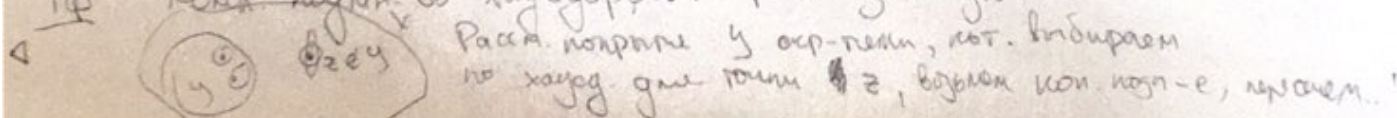 Рассм. покрытие y окр-тями, кот. выбираем
y z ∉ y по хаусд. для точки z, возьмём кон. подп-е, пересечем..